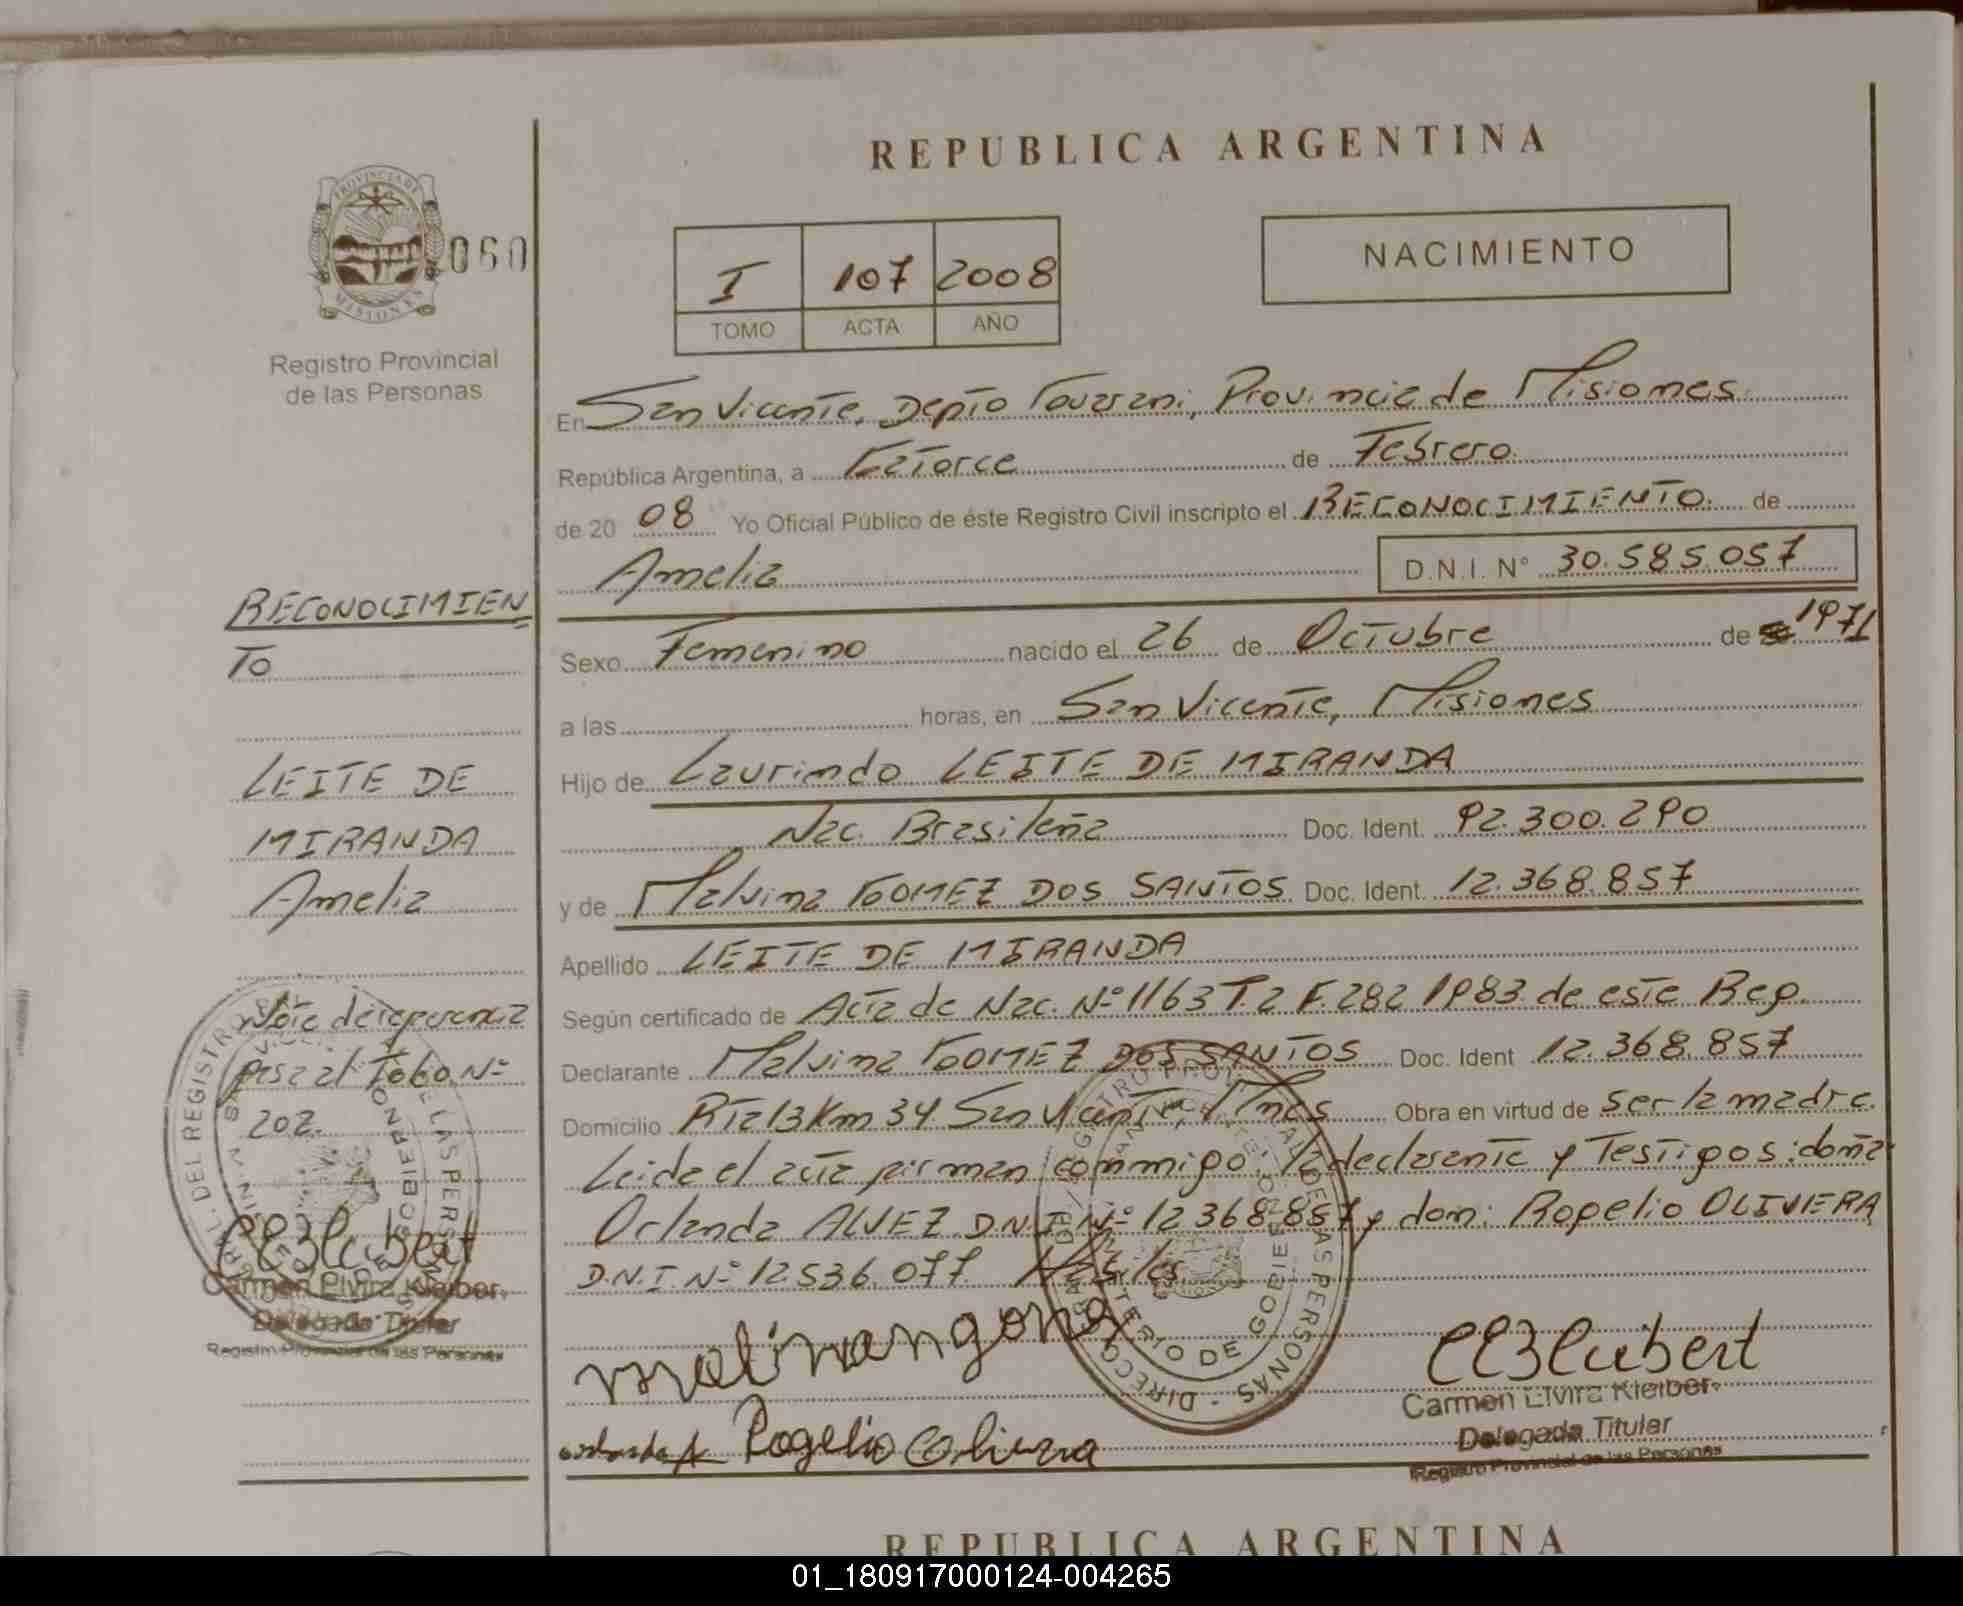 REPUBLICA ARGENTINA
PROVINCIA DE
MISIONES
060
Registro Provincial
de las Personas
I 107 2008
TOMO ACTA AÑO
NACIMIENTO
En San Vicente, Depto Guarani, Provincia de Misiones.
República Argentina, a Catorce de Febrero.
de 20 08 Yo Oficial Público de éste Registro Civil inscripto el RECONOCIMIENTO. de
Amelia D.N.I. N° 30.585.057
Sexo Femenino nacido el 26 de Octubre de 1971
a las horas, en San Vicente, Misiones
Hijo de Laurindo LEITE DE MIRANDA
Nac. Brasileña Doc. Ident. 92.300.290
y de Malvina GOMEZ DOS SANTOS Doc. Ident. 12.368.857
Apellido LEITE DE MIRANDA
Según certificado de Acta de Nac. Nº 1163 T.2 F.282 1983 de este Reg.
Declarante Malvina GOMEZ DOS SANTOS Doc. Ident 12.368.857
Domicilio Rta 13 Km 34 San Vicente, Mnes Obra en virtud de ser la madre.
Leida el acta firman conmigo la declarante y Testigos: doña
Orlanda ALVEZ D.N.I Nº 12368.857 y don: Rogelio OLIVERA
D.N.I Nº 12.536.077
malinangong
Rogelio Olivera
Carmen Elvira Kleiber
Delegada Titular
Registro Provincial de las Personas
RECONOCIMIEN
TO
LEITE DE
MIRANDA
Amelia
Nota de referencia
pasa al folio Nº
202.
Carmen Elvira Kleiber
Delegada Titular
Registro Provincial de las Personas
REPUBLICA ARGENTINA
01_180917000124-004265